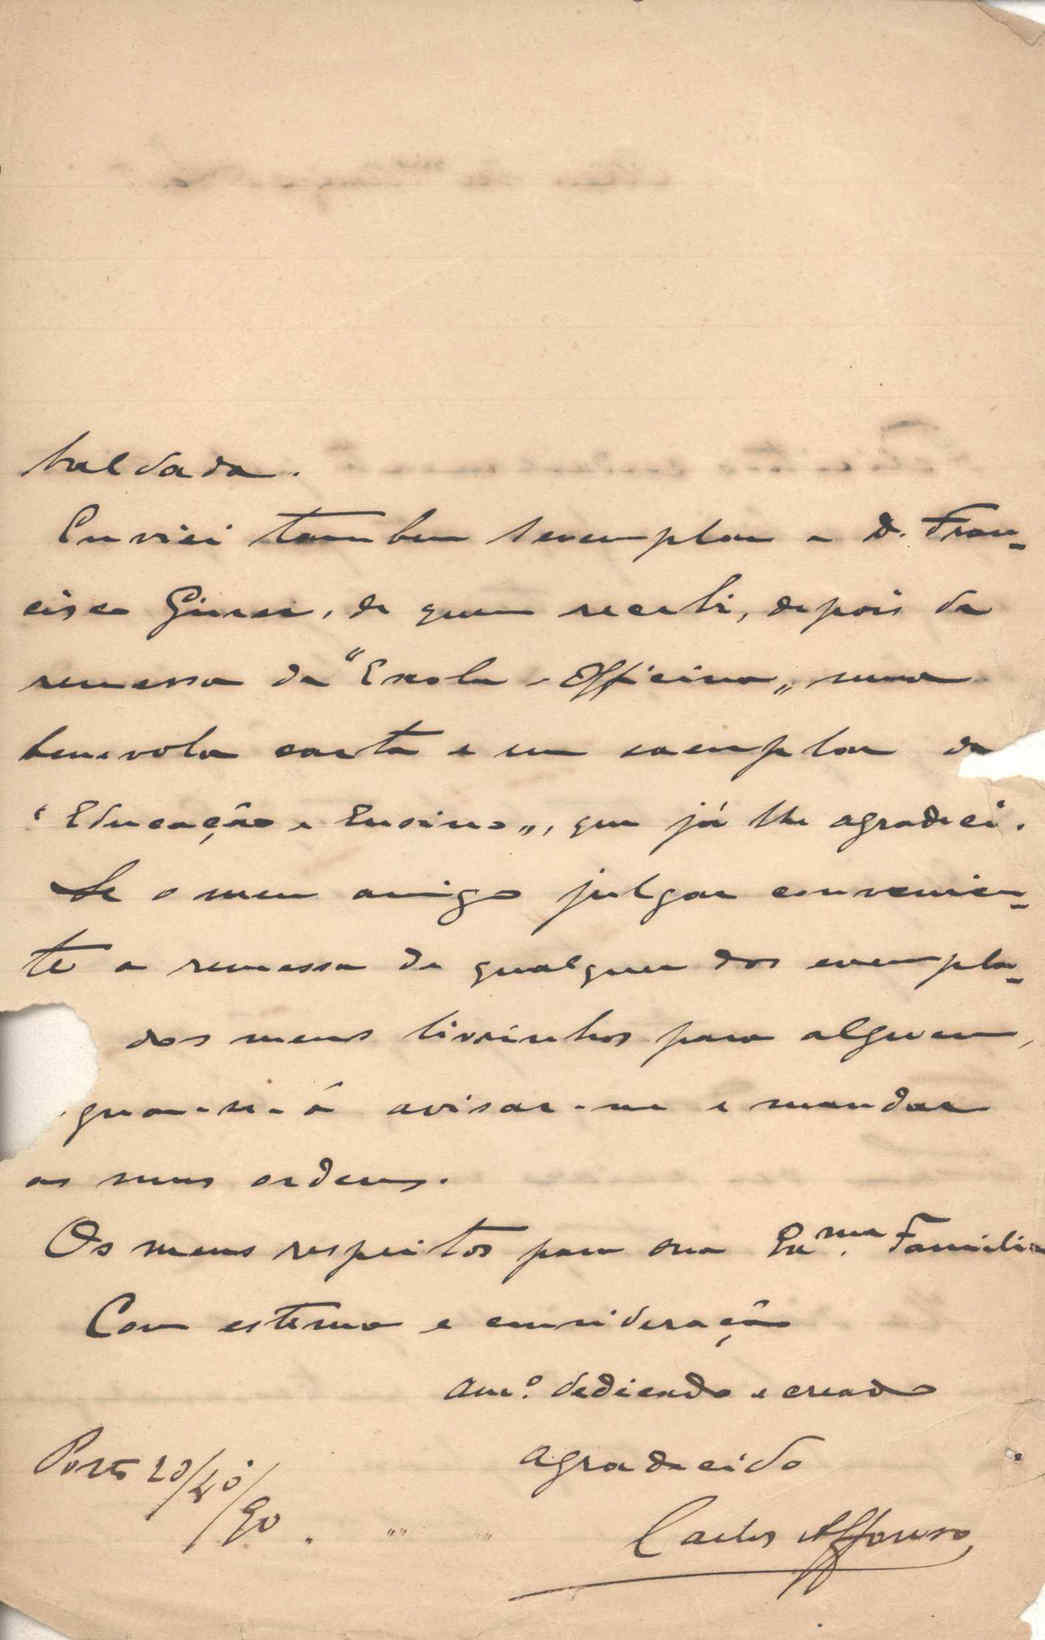 baldada.
Enviei tambem 1 exemplar a D. Fran-
cisco Giner, de quem recebi, depois da
remessa da "Escola-Officina", uma
benevola carta e um exemplar da
"Educação e Ensino", que já lhe agradeci.
Se o meu amigo julgar convenien-
te a remessa de qualquer dos exempla-
dos meus livrinhos para alguem,
gnar-se-á avisar-me e mandar
as suas ordens.
Os meus respeitos para sua Exma. Familia
Com estima e consideração
Amº. dedicado e creado
agradecido
Porto 20/10/90.
Carlos Affonso